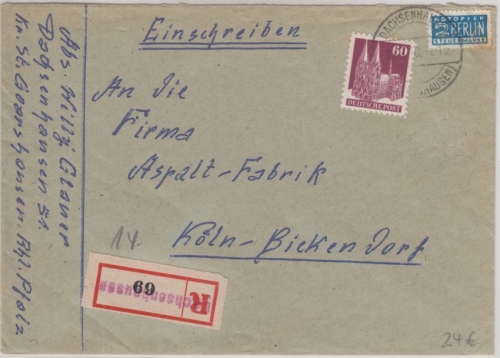 Einschreiben
An die
Firma
Asphalt-Fabrik
Köln-Bickendorf
Abs. Willy Glauer
Dachsenhausen 51.
Kr. St. Goarshausen. Rhl. Pfalz
60
DEUTSCHE POST
NOTOPFER
2 BERLIN
STEUERMARKE
DACHSENHAUSEN
HAUSEN)
14.
R
69
chsenhausen
24€